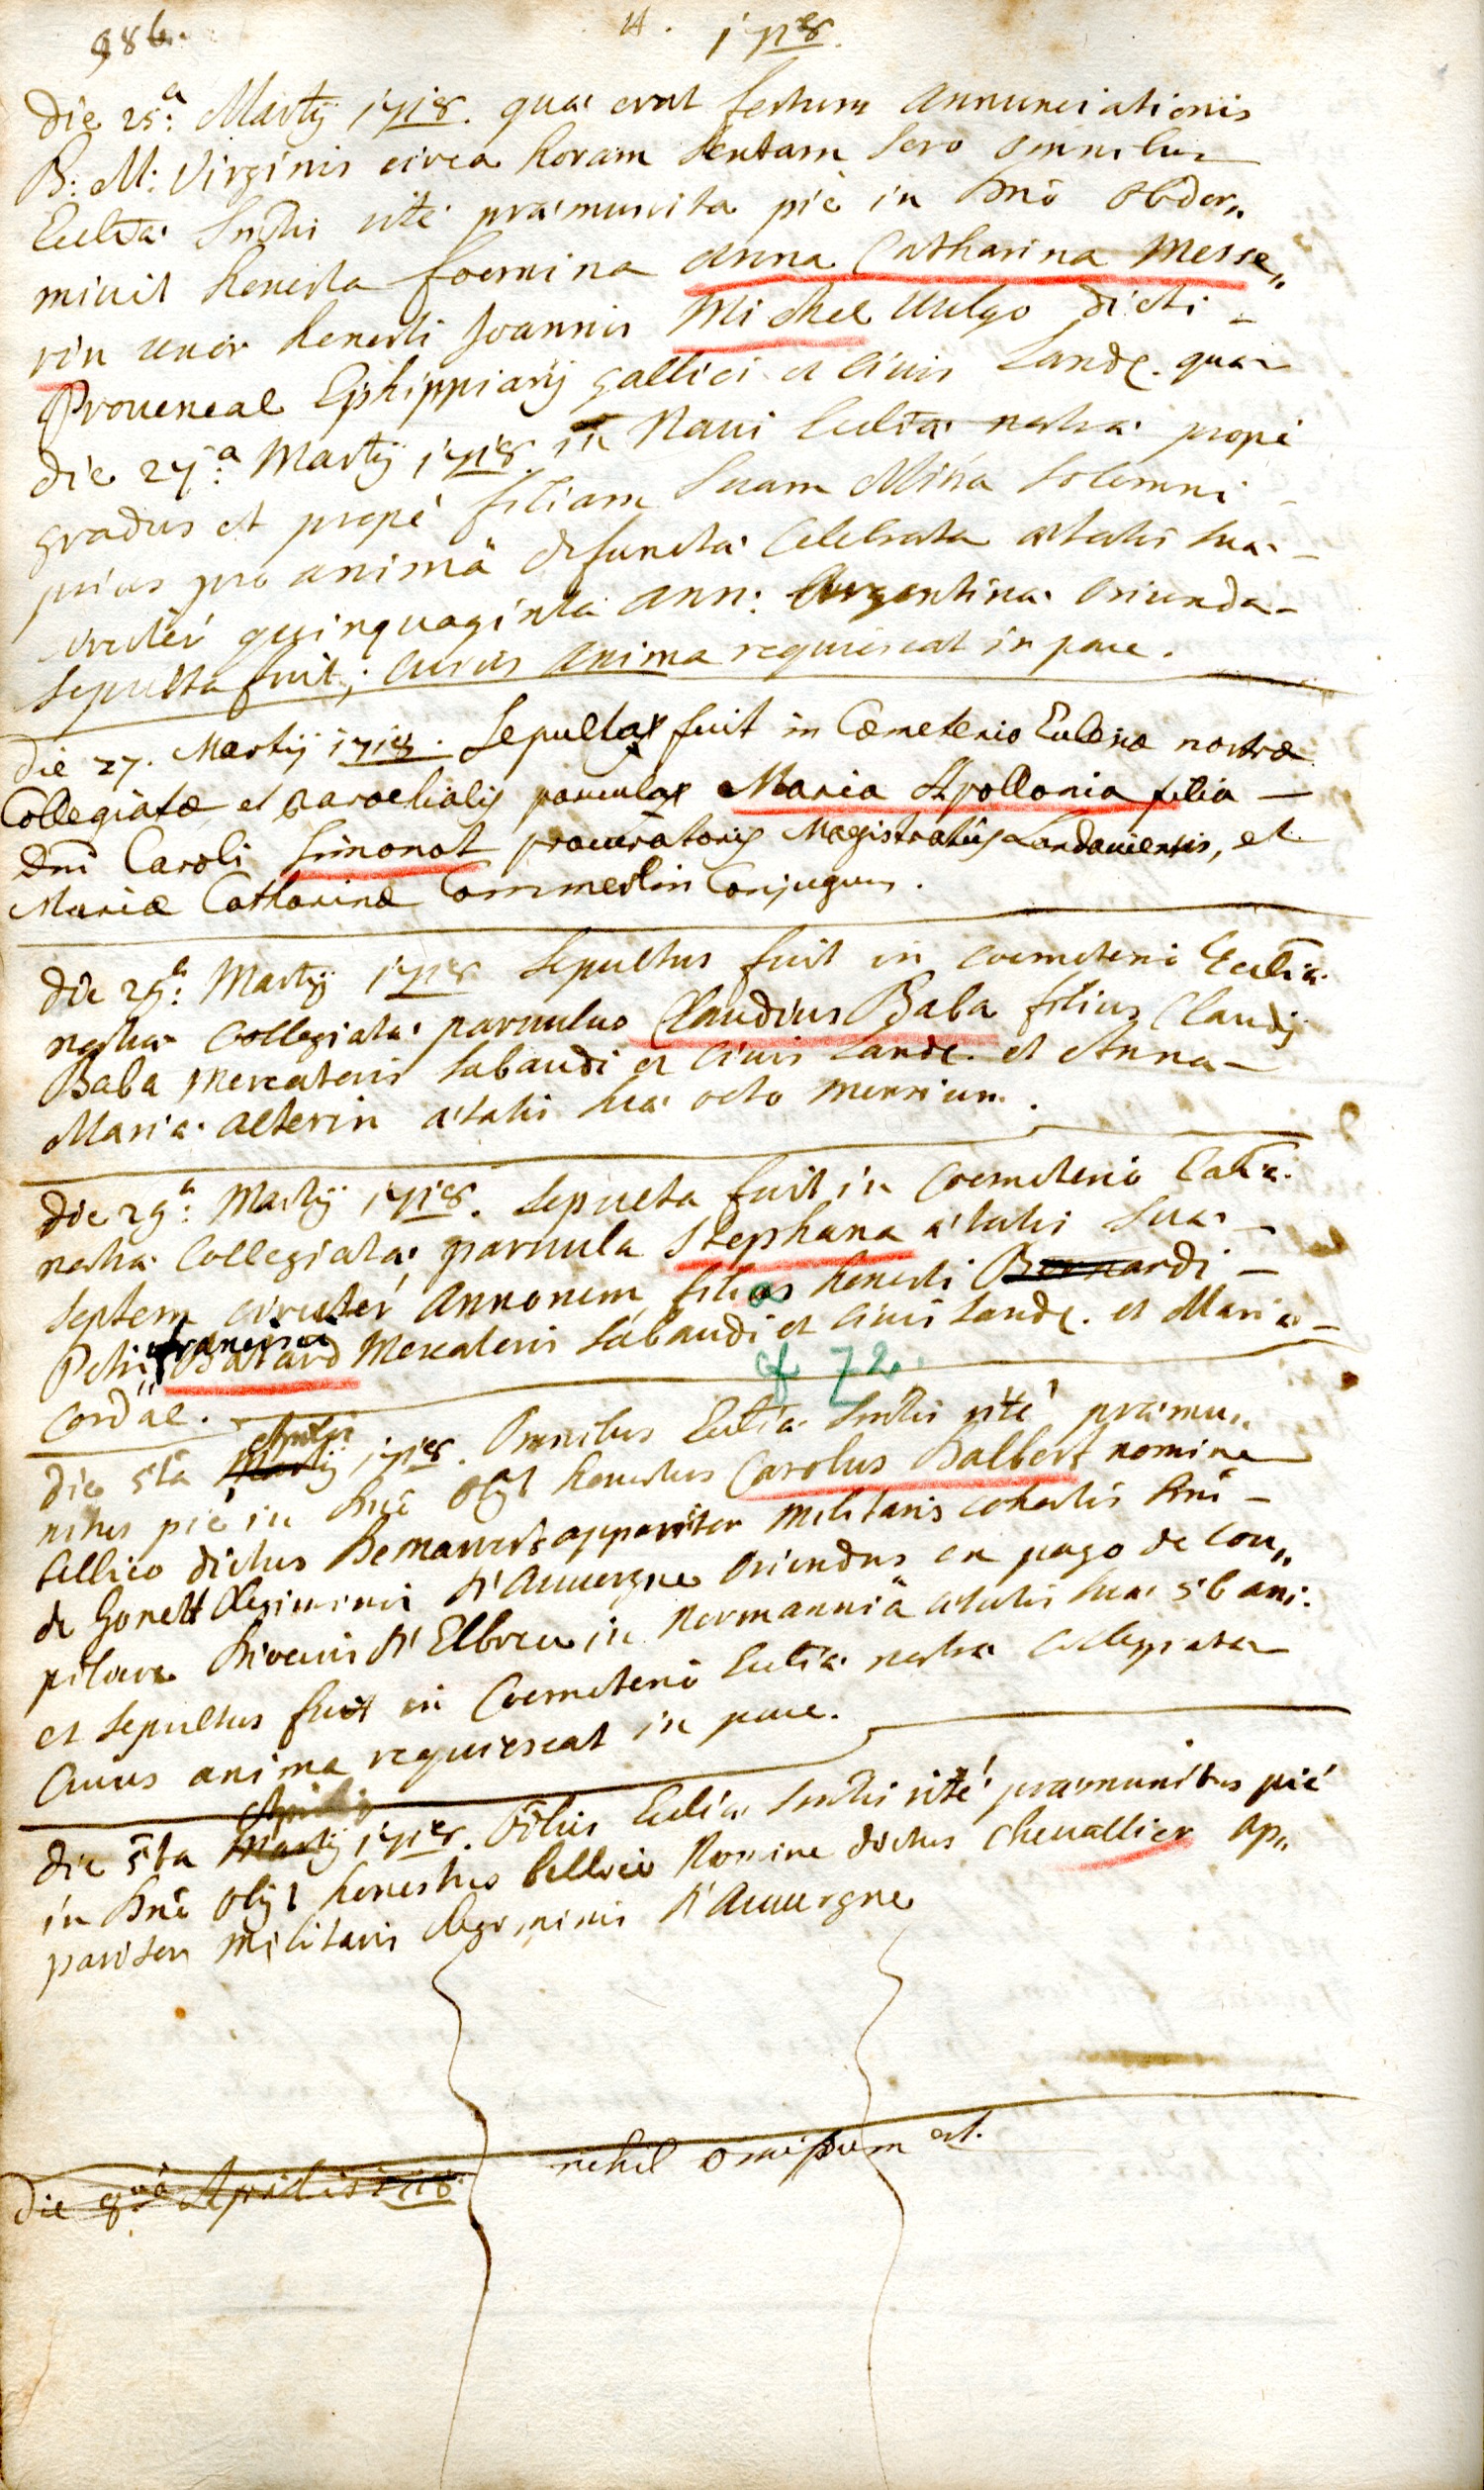 986.
14. 1718.
Die 25ª: Martij 1718. quæ erat festum Annunciationis
B: M: Virginis circa horam sextam sero omnibus
Eccliæ Sactis ritè præmunita piè in Dno obdor„
mivit honesta foemina Anna Catharina Messe„
rin uxor honesti Joannis Michel vulgo dicti –
Provencal Ephippiarij gallici et civis Land. quæ
die 27ª: Martij 1718. in Navi Eccliæ nostræ propè
gradus et propè filiam suam Missa solemni –
prius pro animâ defunctæ celebrata ætatis suæ –
circiter quinquaginta ann: Argentinæ oriunda –
sepulta fuit; cuius anima requiescat in pace.
Die 27. Martij 1718. Sepulta fuit in Cœmeterio Eccleiæ nostræ
Collegiatæ et Parochialis parvula Maria Apollonia filia –
Dni Caroli Simonot procuratoris Magistratûs Landaviensis, et
Mariæ Catharinæ Commerlin Conjugum.
Die 29ª: Martij 1718 Sepultus fuit in coemeterio Eccliæ
nostræ Collegiatæ parvulus Claudius Baba filius Claudij
Baba Mercatoris Sabaudi et civis Land. et Anna –
Mariæ Alterin ætatis suæ octo mensium.
Die 29ª: Martij 1718. Sepulta fuit in Coemeterio Eccliæ
nostræ Collegiatæ parvula Stephana ætatis suæ –
septem circiter annorum filia honesti Bernardi –
francisci
Petri Batard Mercatoris Sabaudi et civis Land. et Maria –
cf 72.
Cordäe.
Aprilis
Die 5ta Martij 1718. Omnibus Eccliæ Sactis ritè præmu„
nitus piè in Dno obijt honestus Carolus Balbert nomine
bellico dictus Demarest appariter militaris cohortis Dni –
de Gonett Regiminis D'Auvergne oriundus ex pago de Cou„
pilare Divecris D'Elbreu in Normanniâ ætatis suæ 56 ani:
et Sepultus fuit in Coemeterio Eccliæ nostræ Collegiatæ
Cuius anima requiescat in pace.
Aprilis
Die 5ta Martij 1718. Oibus Eccliæ Sactis ritè præmunitus piè
in Dno obijt honestus bellico Nomine dictus Chevallier Ap„
pariter militaris Regiminis D'Auvergne
nihil omissum est.
Die 8va Aprilis 1718.